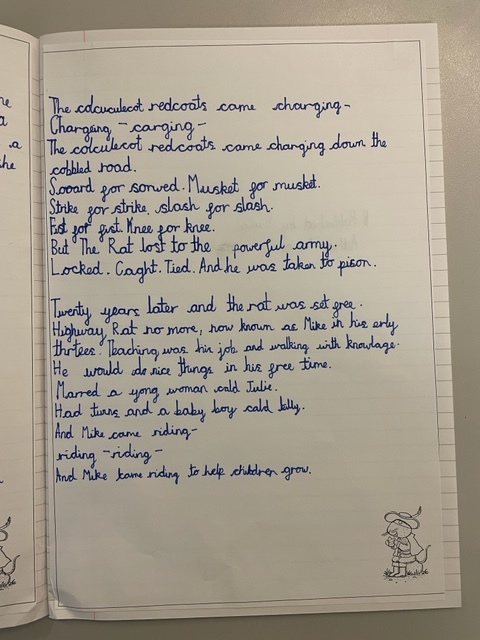 he
a
a
she
The colcuculecot redcoats came charging-
Charging - carging-
The colculecot redcoats came charging down the
cobbled road.
Sooard for sorwed. Musket for musket.
Strike for strike, slash for slash.
Fist for fist. Knee for knee.
But The Rat lost to the powerful army.
Locked. Caght. Tied. And he was taken to pison.
Twenty years later and the rat was set free.
Highway Rat no more, now known as Mike in his erly
thirtees. Teaching was his job and walking with knowlage.
He would do nice things in his free time.
Marred a yong woman cald Julie.
Had twins and a baby boy cald billy.
And Mike came riding-
riding - riding-
And Mike came riding to help children grow.